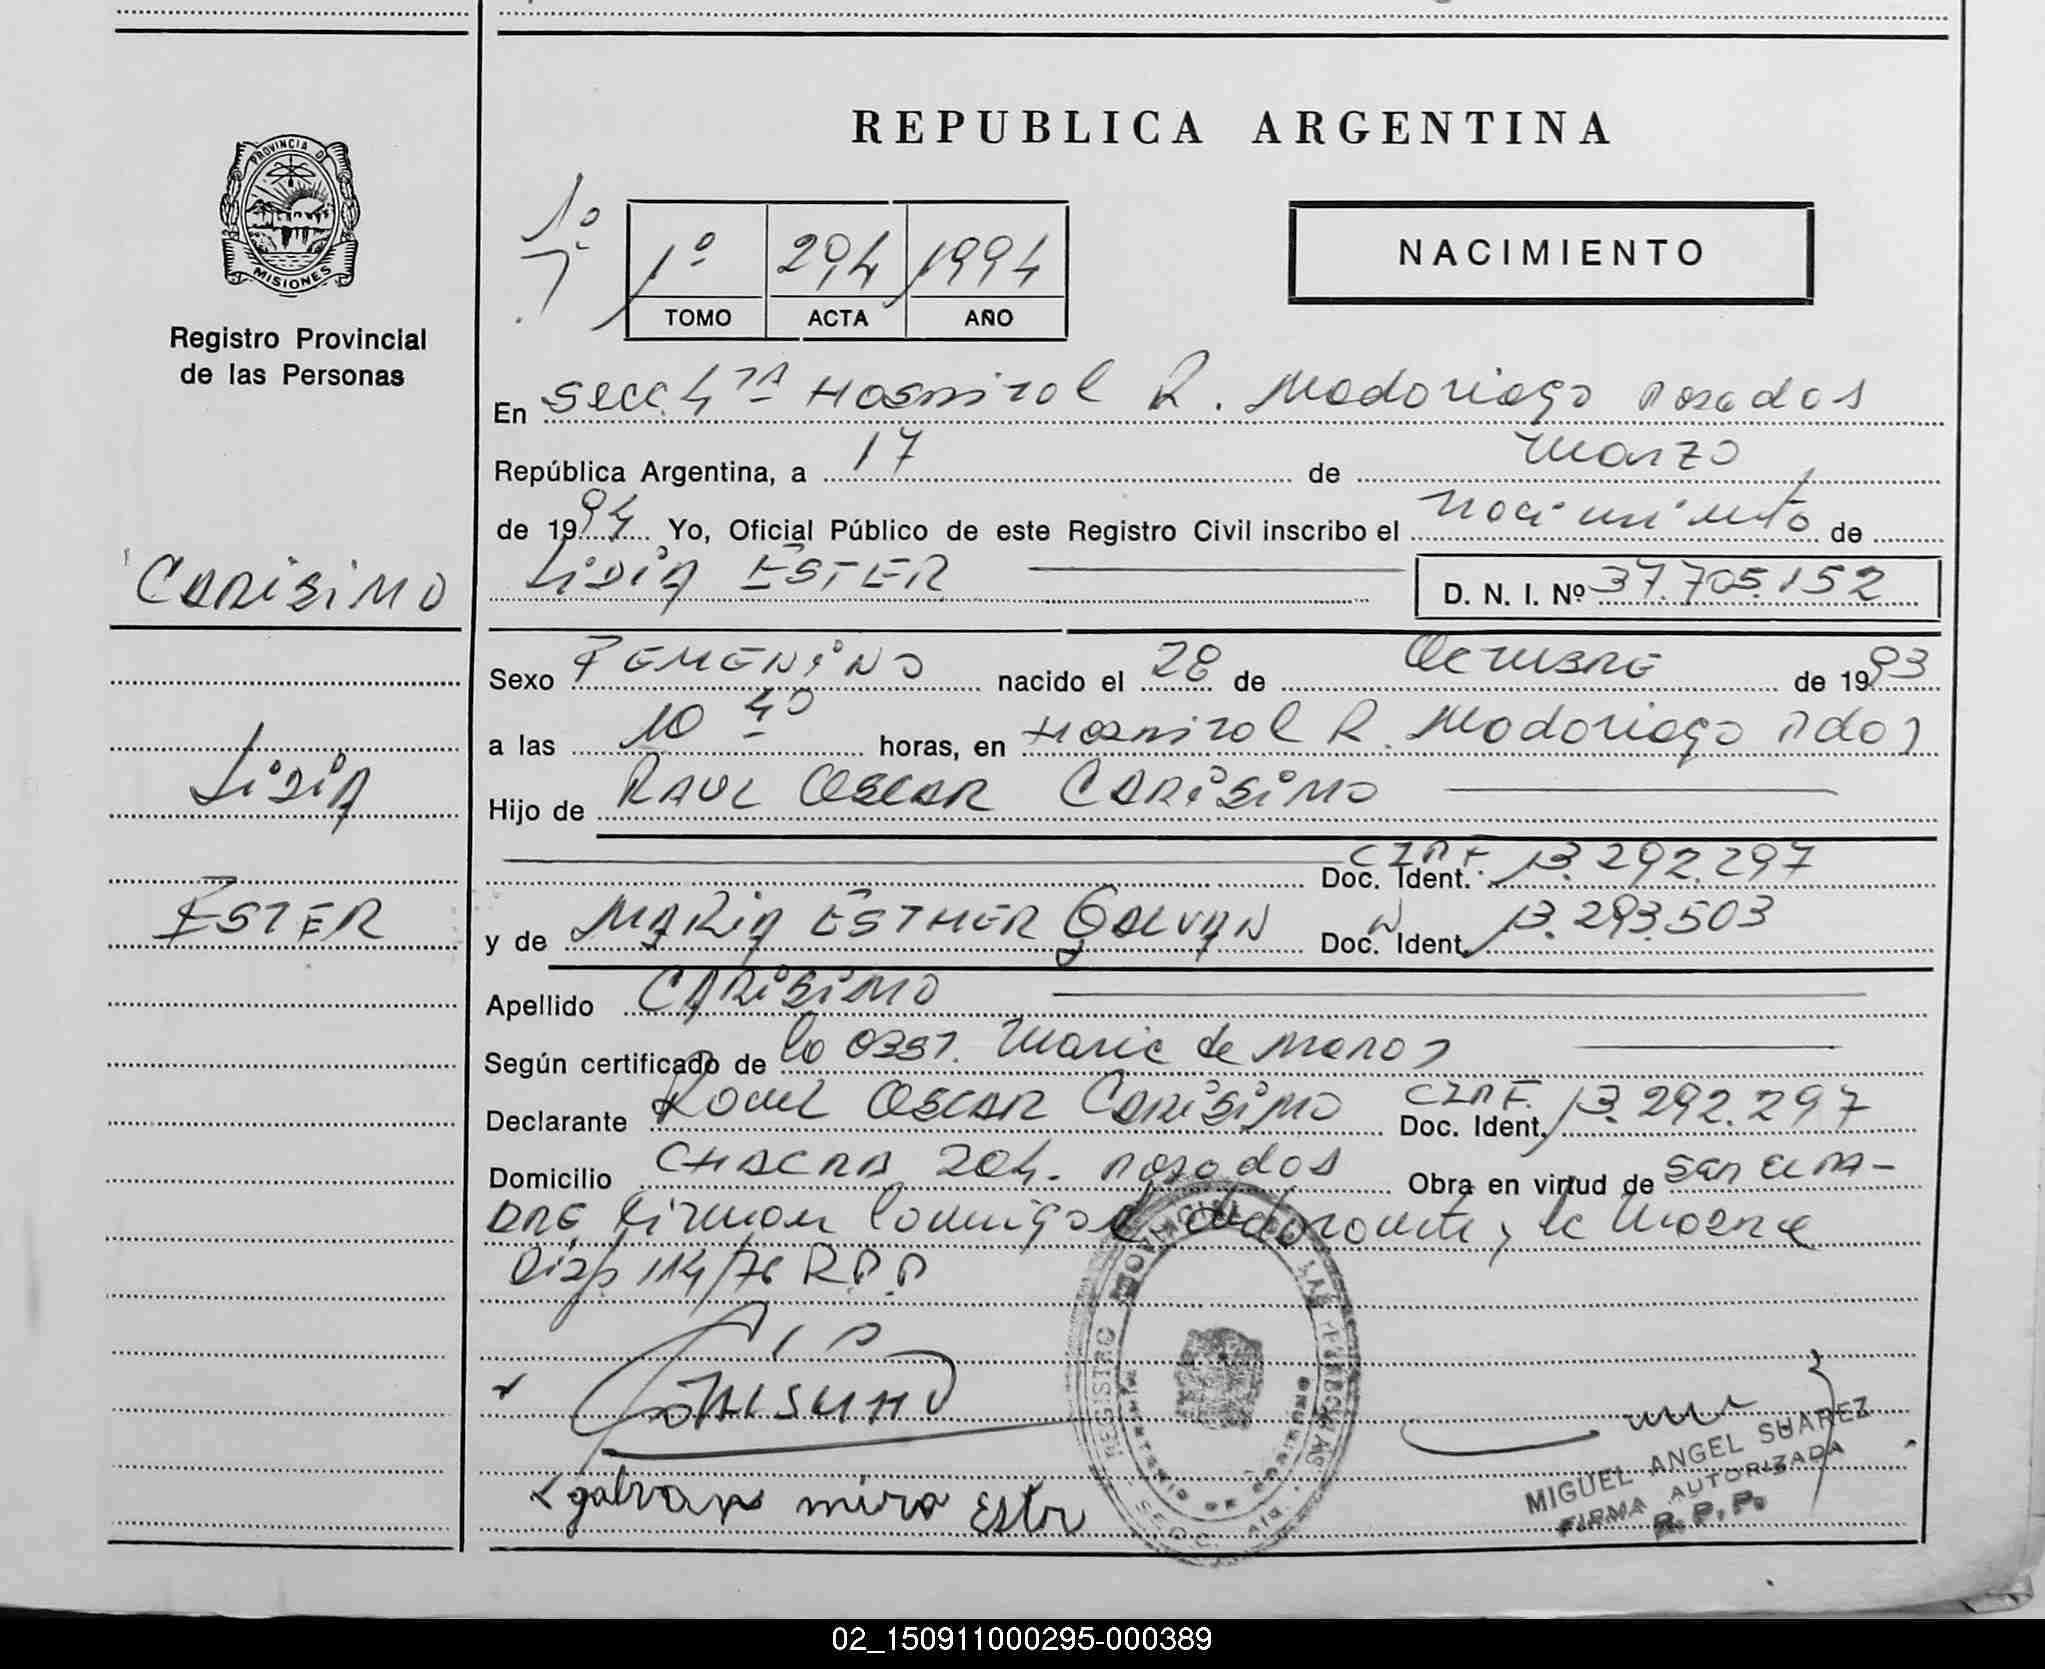 REPUBLICA ARGENTINA
PROVINCIA D
MISIONES
Registro Provincial
de las Personas
1º
1º 294 1994
TOMO ACTA AÑO
NACIMIENTO
En Secc. 4ta Hospital R. Madariaga Posadas
República Argentina, a 17 de Marzo
de 1994 Yo, Oficial Público de este Registro Civil inscribo el nacimiento de
CARISIMO
LIDIA ESTER
D. N. I. Nº 37.705.152
Sexo FEMENINO nacido el 28 de OCTUBRE de 1993
a las 10 40 horas, en Hospital R. Madariaga Pdas
LIDIA
Hijo de RAUL OSCAR CARISIMO
Doc. Ident. 13.292.297
ESTER
y de MARIA ESTHER GALVAN Doc. Ident. 13.293.503
Apellido CARISIMO
Según certificado de la obst. Maria de
Declarante Raul OSCAR CARISIMO Doc. Ident. 13.292.297
Domicilio CHACRA 204. Posadas Obra en virtud de
firman conmigo el declarante y la Madre
Disp 114/76 R.P.P
CARISIMO
galvan mira Ester
REGISTRO PROVINCIAL LAS PERSONAS
MINISTERIO DE GOBIERNO
MIGUEL ANGEL SUAREZ
FIRMA AUTORIZADA
R. P. P.
02_150911000295-000389